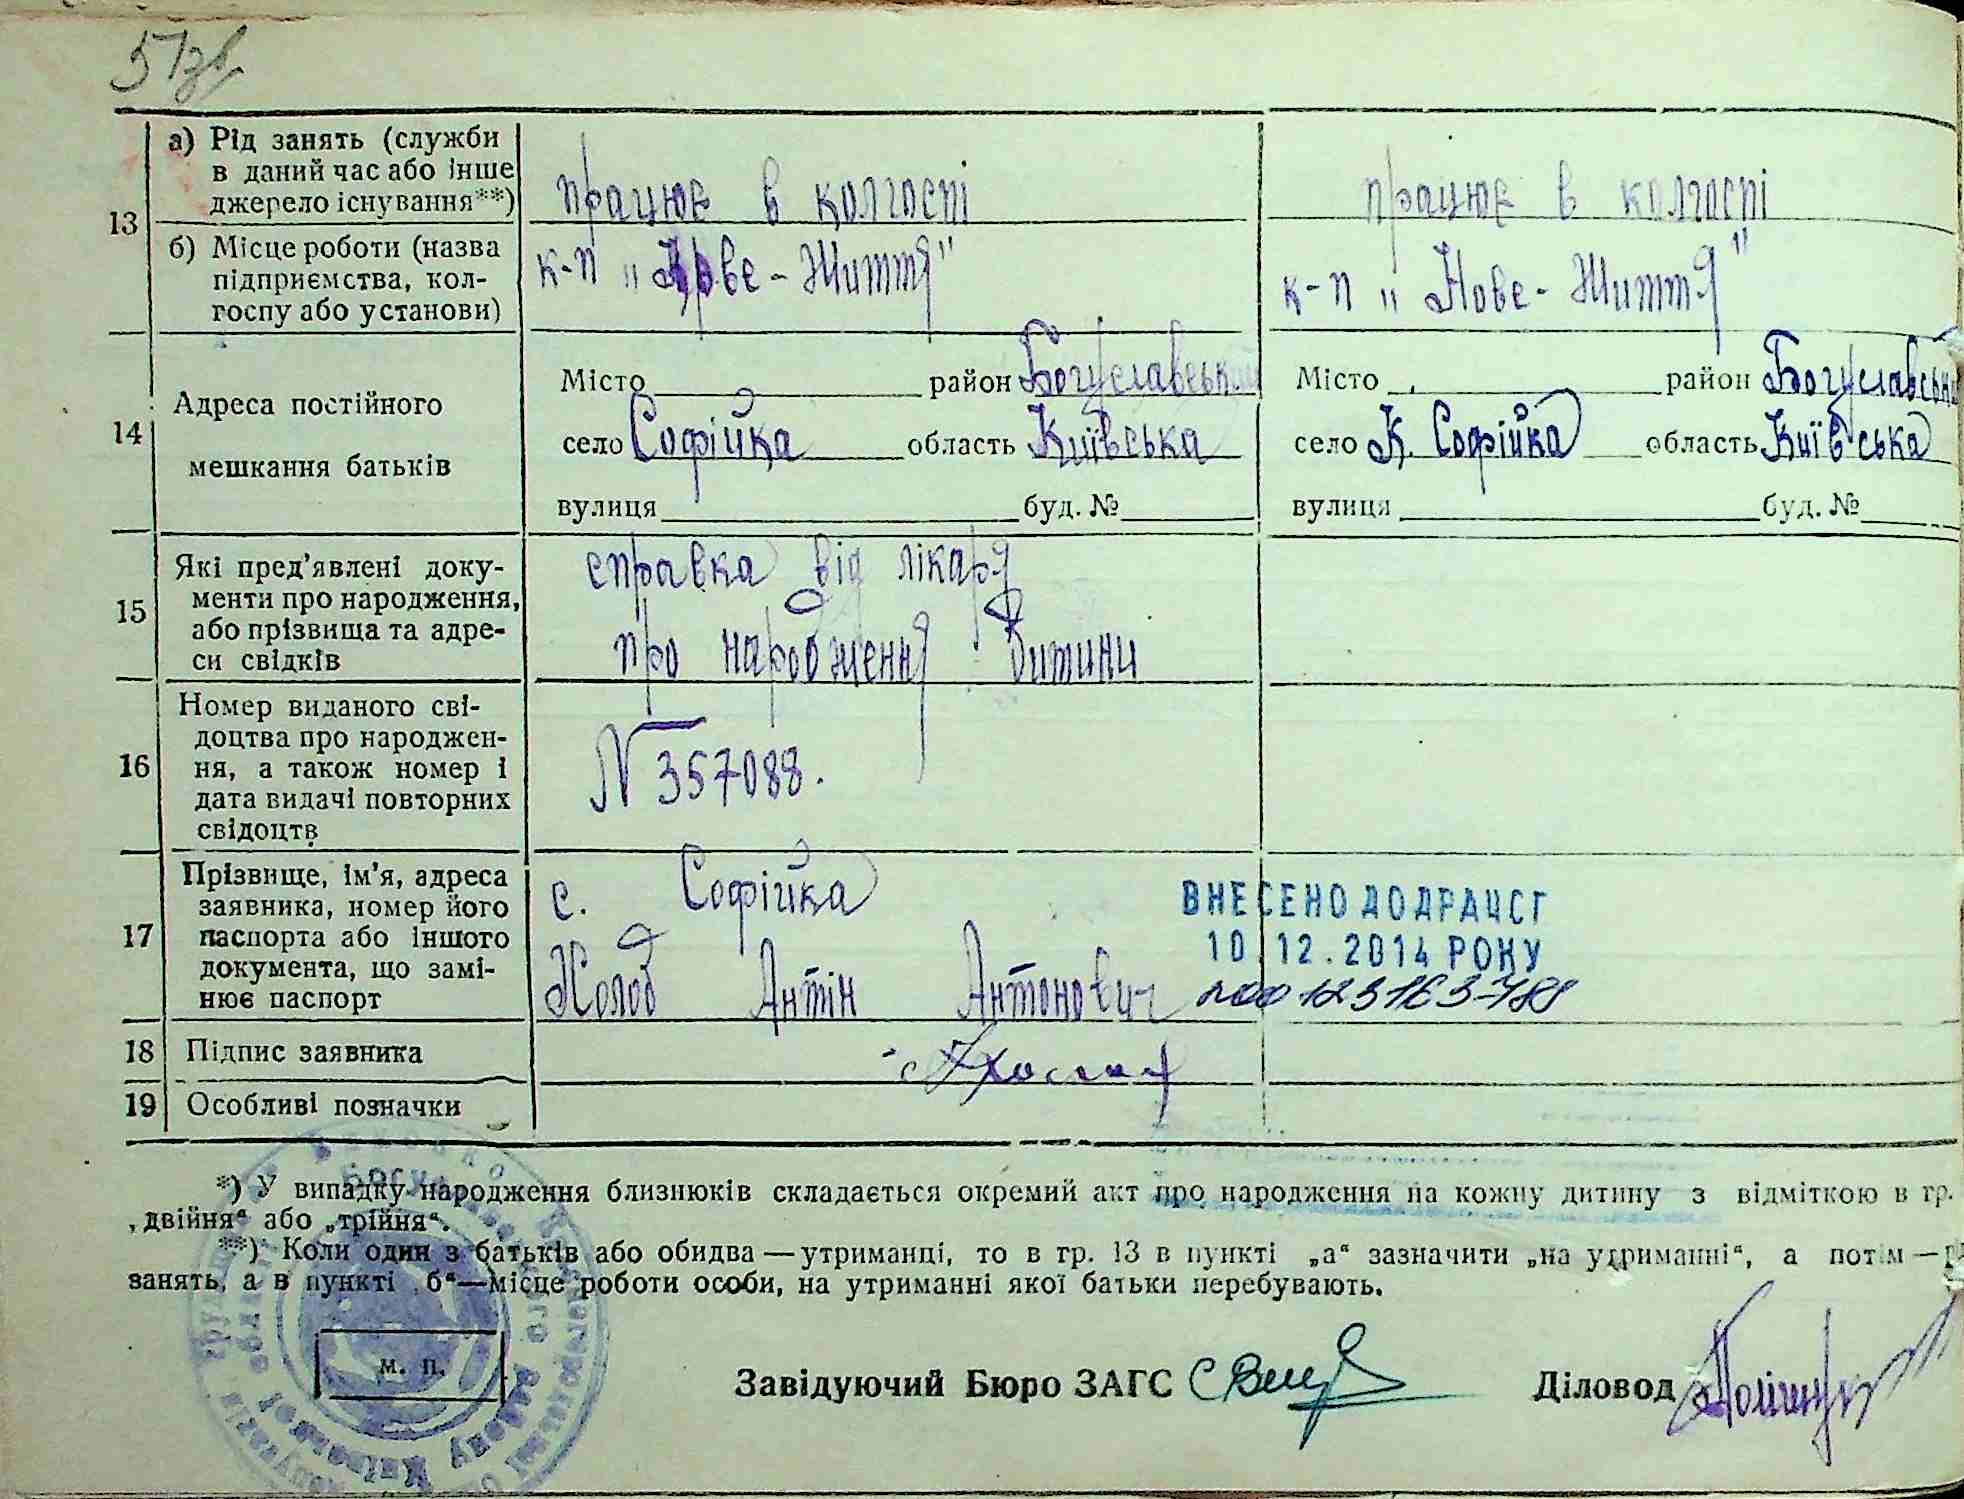 51зв
13
а) Рід занять (служби
в даний час або інше
джерело існування**)
працює в колгоспі
працює в колгоспі
б) Місце роботи (назва
підприємства, кол-
госпу або установи)
к-п „Нове-Життя"
к-п „Нове-Життя"
14
Адреса постійного
мешкання батьків
Місто район Богуславський
село Софійка область Київська
вулиця буд. №
Місто район Богуславський
село К. Софійка область Київська
вулиця буд. №
15
Які пред'явлені доку-
менти про народження,
або прізвища та адре-
си свідків
справка від лікаря
про народження дитини
16
Номер виданого сві-
доцтва про народжен-
ня, а також номер і
дата видачі повторних
свідоцтв
N 357088.
17
Прізвище, ім'я, адреса
заявника, номер його
паспорта або іншого
документа, що замі-
нює паспорт
с. Софійка
Холод Антін Антонович
ВНЕСЕНО ДО ДРАЦСГ
10.12.2014 РОКУ
00123163788
18
Підпис заявника
19
Особливі позначки
*) У випадку народження близнюків складається окремий акт про народження на кожну дитину з відміткою в гр.
„двійня" або „трійня".
**) Коли один з батьків або обидва — утриманці, то в гр. 13 в пункті „а" зазначити „на утриманні", а потім —
занять, а в пункті б"—місце роботи особи, на утриманні якої батьки перебувають.
м. п.
Завідуючий Бюро ЗАГС
Діловод